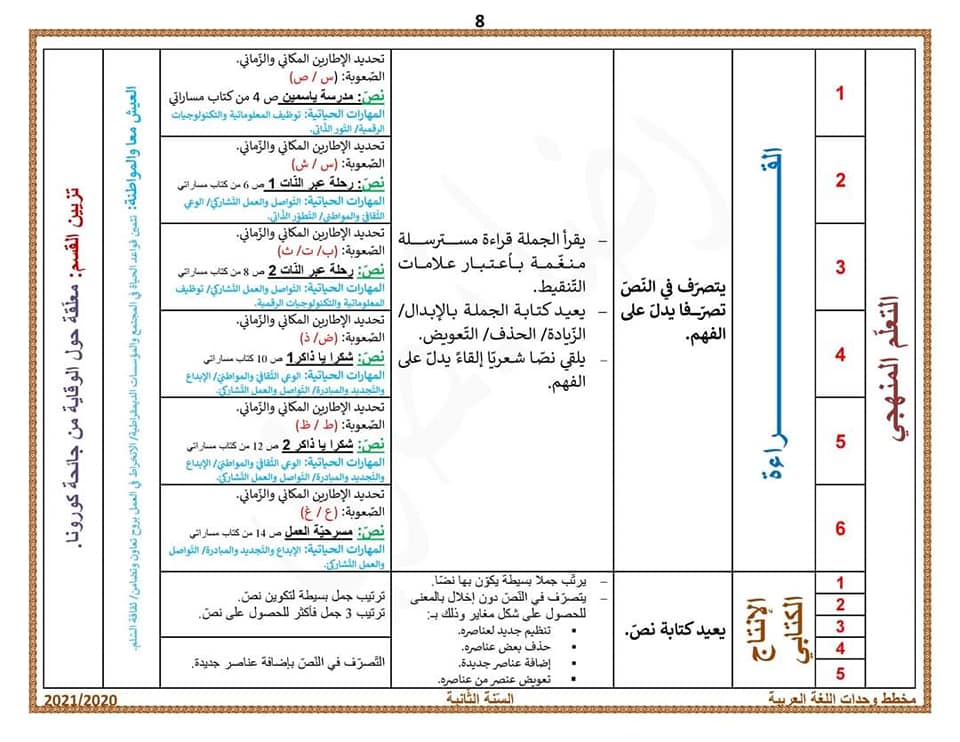 8
التعلّم المنهجي
القـــراءة
يتصرّف في النّصّ
تصرّفا يدلّ على
الفهم.
– يقرأ الجملة قراءة مسترسلة
منغّمة بأعتبار علامات
التّنقيط.
– يعيد كتابة الجملة بالإبدال/
الزّيادة/ الحذف/ التّعويض.
– يلقي نصّا شعريّا إلقاءً يدلّ على
الفهم.
1
تحديد الإطارين المكاني والزّماني.
الصّعوبة: (س / ص)
نصّ: مدرسة ياسمين ص 4 من كتاب مساراتي
المهارات الحياتية: توظيف المعلوماتية والتكنولوجيات
الرقمية/ النّور الذّاتي.
2
تحديد الإطارين المكاني والزّماني.
الصّعوبة: (س / ش)
نصّ: رحلة عبر النّات 1 ص 6 من كتاب مساراتي
المهارات الحياتية: التّواصل والعمل التّشاركي/ الوعي
الثّقافي والمواطني/ التّطوّر الذّاتي.
3
تحديد الإطارين المكاني والزّماني.
الصّعوبة: (ب/ ت/ ث)
نصّ: رحلة عبر النّات 2 ص 8 من كتاب مساراتي
المهارات الحياتية: التّواصل والعمل التّشاركي/ توظيف
المعلوماتية والتكنولوجيات الرقمية.
4
تحديد الإطارين المكاني والزّماني.
الصّعوبة: (ض/ ذ)
نصّ: شكرا يا ذاكر1 ص 10 من كتاب مساراتي
المهارات الحياتية: الوعي الثّقافي والمواطني/ الإبداع
والتّجديد والمبادرة/ التّواصل والعمل التّشاركي.
5
تحديد الإطارين المكاني والزّماني.
الصّعوبة: (ط / ظ)
نصّ: شكرا يا ذاكر 2 ص 12 من كتاب مساراتي
المهارات الحياتية: الوعي الثّقافي والمواطني/ الإبداع
والتّجديد والمبادرة/ التّواصل والعمل التّشاركي.
6
تحديد الإطارين المكاني والزّماني.
الصّعوبة: (ع / غ)
نصّ: مسرحيّة العمل ص 14 من كتاب مساراتي
المهارات الحياتية: الإبداع والتّجديد والمبادرة/ التّواصل
والعمل التّشاركي.
الإنتاج
الكتابي
1
2
3
4
5
يعيد كتابة نصّ.
– يرتّب جملا بسيطة يكوّن بها نصّا.
– يتصرّف في النّصّ دون إخلال بالمعنى
للحصول على شكل مغاير وذلك بـ:
▪ تنظيم جديد لعناصره.
▪ حذف بعض عناصره.
▪ إضافة عناصر جديدة.
▪ تعويض عنصر من عناصره.
ترتيب جمل بسيطة لتكوين نصّ.
ترتيب 3 جمل فأكثر للحصول على نصّ.
التّصرّف في النّصّ بإضافة عناصر جديدة.
العيش معا والمواطنة: تثمين قواعد الحياة في المجتمع والمؤسسات الديمقراطية/ الانخراط في العمل بروح تعاون وتضامن/ ثقافة السّلم.
تزيين القسم: معلّقة حول الوقاية من جائحة كورونا.
مخطط وحدات اللغة العربية
السّنة الثّانية
2021/2020